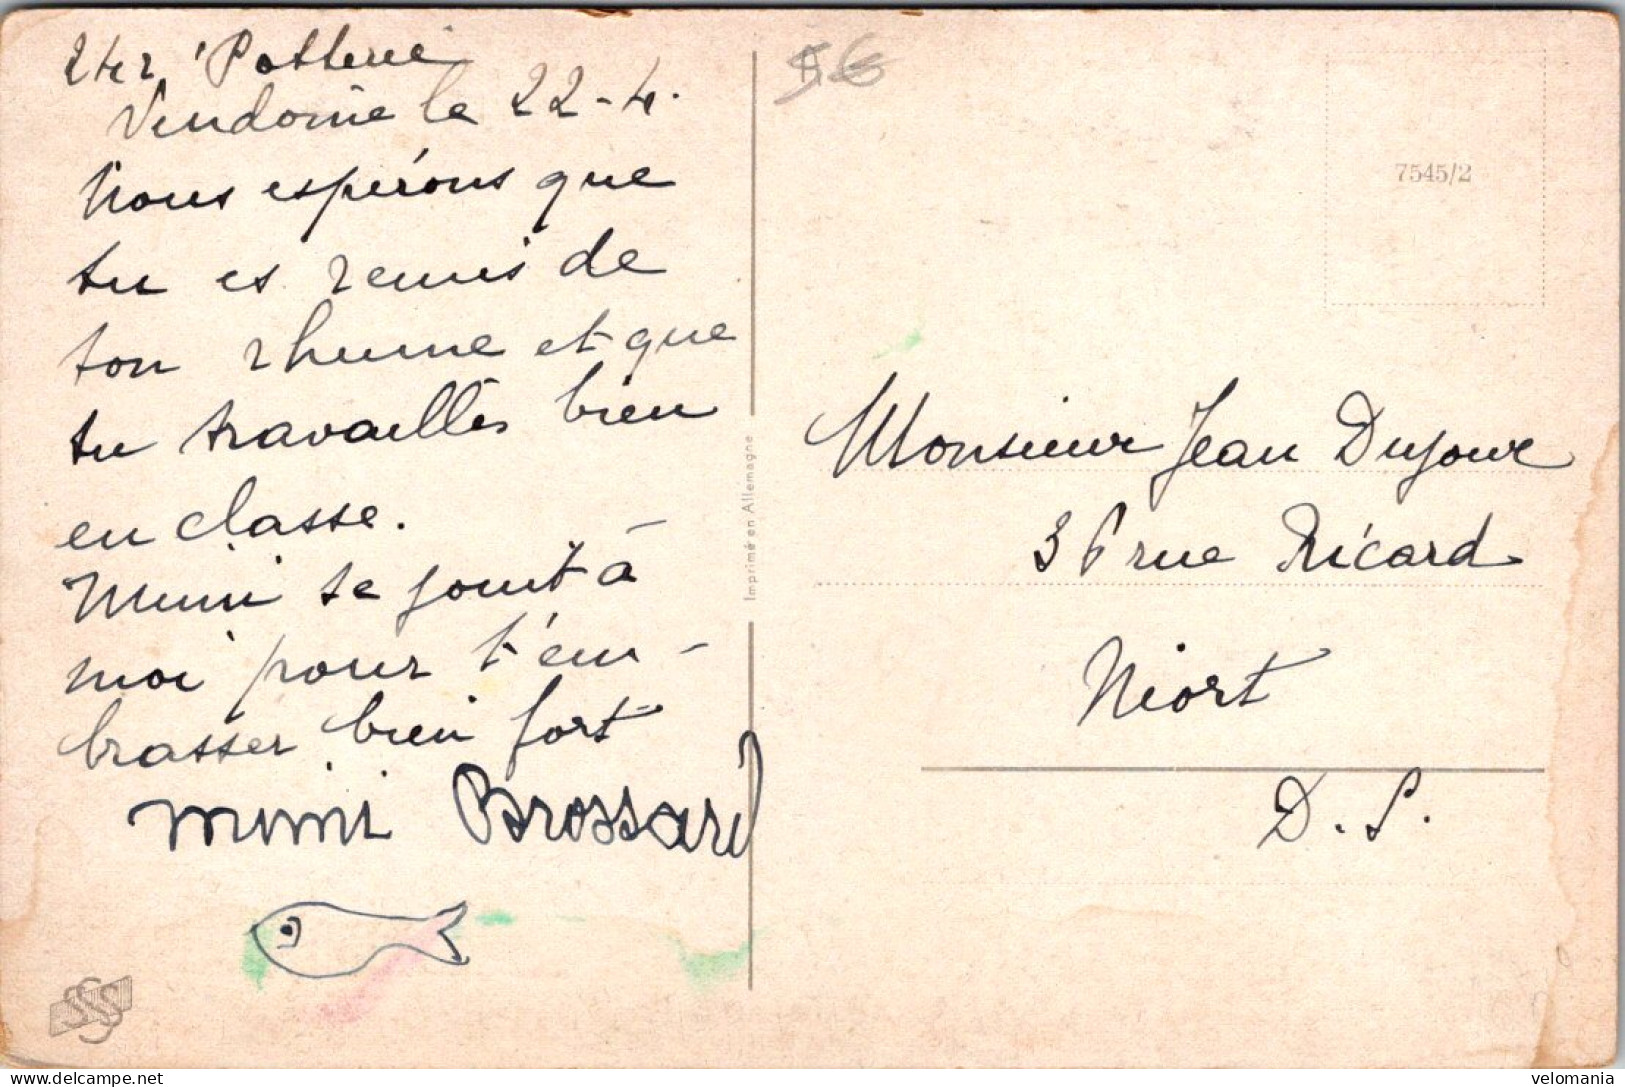 2ter, Potterie
Vendôme le 22-4.
Nous espérons que
tu es remis de
ton rhume et que
tu travailles bien
en classe.
Mimi se joint à
moi pour t'em-
brasser bien fort
mimi Brossard
Imprimé en Allemagne
5€
7545/2
Monsieur Jean Dujour
36 rue Ricard
Niort
D. S.
velomania